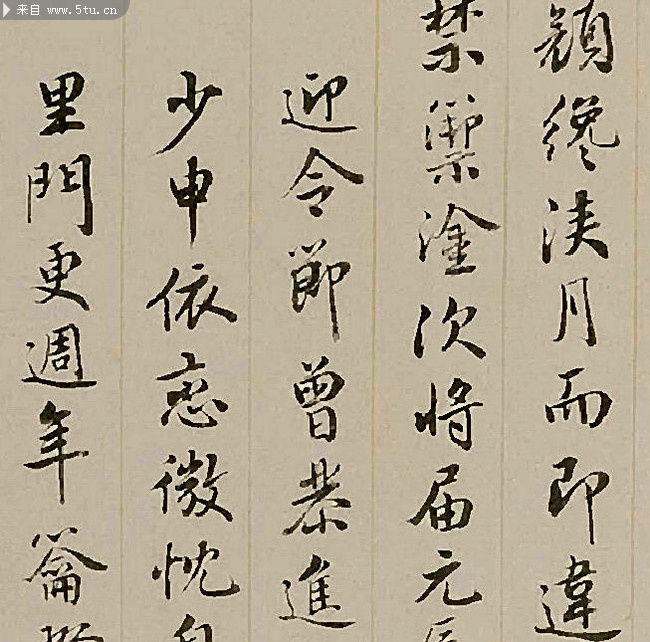 来自 www.5tu.cn
顔纔浹月而即違
禁籞塗次將届元
迎令節曾恭進
少申依恋微忱
里門更週年